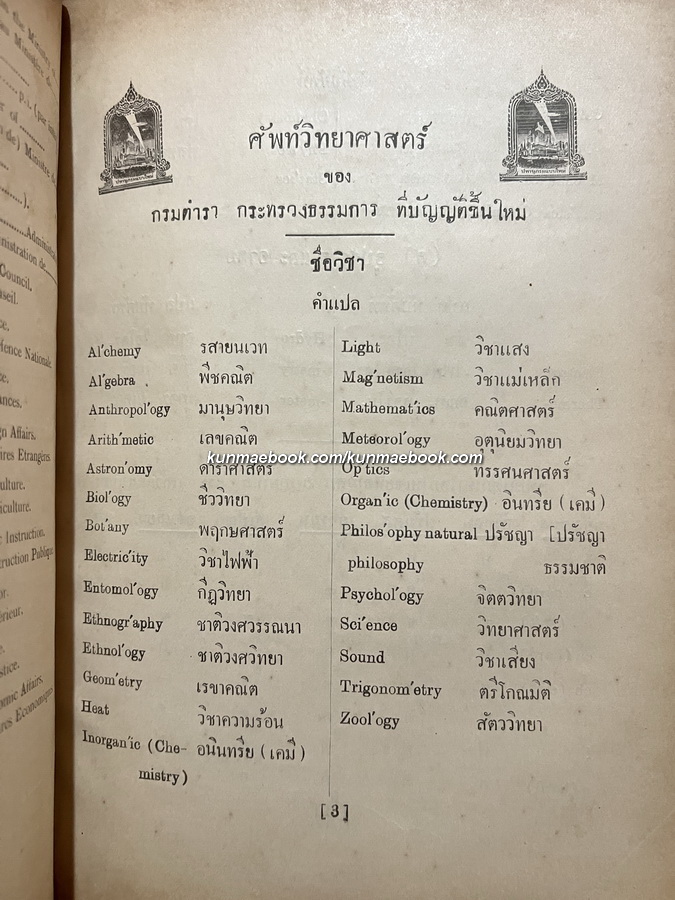 ศัพท์วิทยาศาสตร์
ของ
กรมตำรา กระทรวงธรรมการ ที่บัญญัติขึ้นใหม่
ชื่อวิชา
คำแปล
Al'chemy รสายนเวท
Al'gebra พีชคณิต
Anthropol'ogy มานุษวิทยา
Arith'metic เลขคณิต
Astron'omy ดาราศาสตร์
Biol'ogy ชีววิทยา
Bot'any พฤกษศาสตร์
Electric'ity วิชาไฟฟ้า
Entomol'ogy กีฏวิทยา
Ethnogr'aphy ชาติวงศวรรณนา
Ethnol'ogy ชาติวงศวิทยา
Geom'etry เรขาคณิต
Heat วิชาความร้อน
Inorgan'ic (Che- อนินทรีย (เคมี)
mistry)
Light วิชาแสง
Mag'netism วิชาแม่เหล็ก
Mathemat'ics คณิตศาสตร์
Meteorol'ogy อุตุนิยมวิทยา
Op'tics ทรรศนศาสตร์
Organ'ic (Chemistry) อินทรีย (เคมี)
Philos'ophy natural ปรัชญา [ปรัชญา
philosophy ธรรมชาติ
Psychol'ogy จิตตวิทยา
Sci'ence วิทยาศาสตร์
Sound วิชาเสียง
Trigonom'etry ตรีโกณมิติ
Zool'ogy สัตววิทยา
[3]
kunmaebook.com/kunmaebook.com
Council.
Affairs.
Instruction.